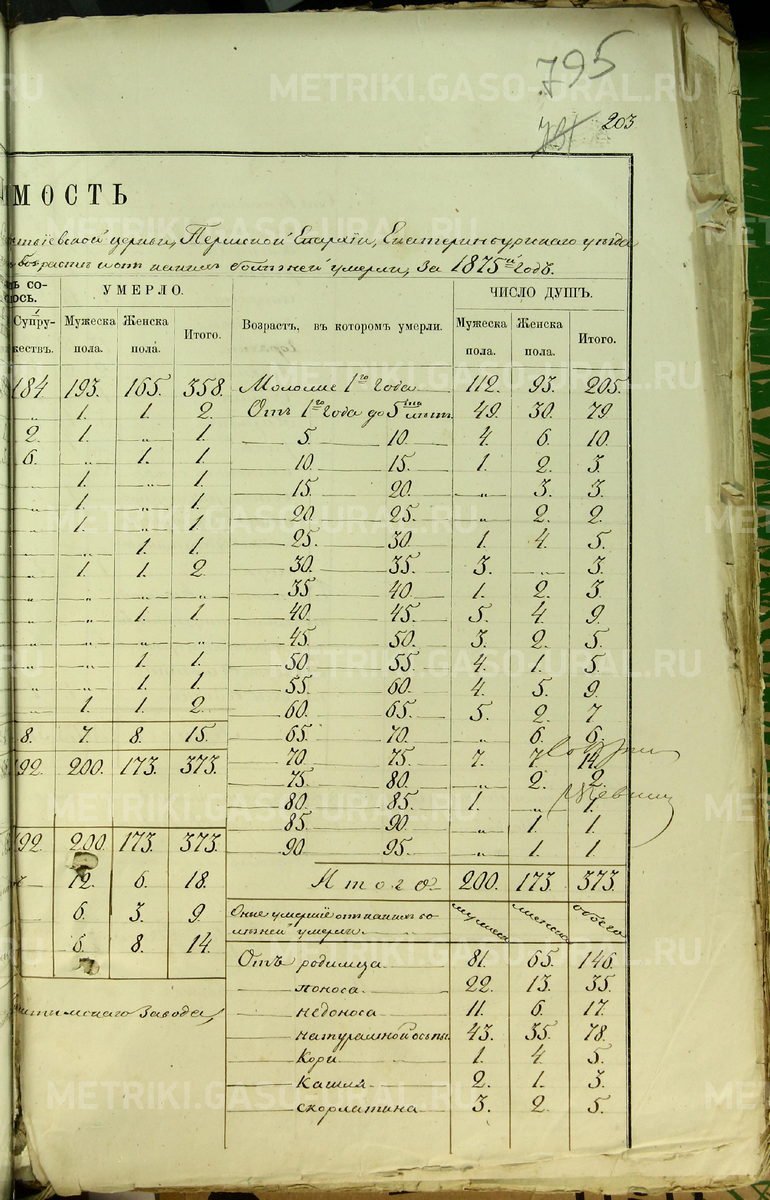 795
203
МОСТЬ
церкви, Пермской Епархіи, Екатеринбургскаго уезда
возрастъ и отъ какихъ болѣзней умерли, за 1875й годъ.
УМЕРЛО. ЧИСЛО ДУШЪ.
Супру- Мужеска Женска Итого. Возрастъ, въ которомъ умерли. Мужеска Женска Итого.
жествъ. пола. пола. пола. пола.
184. 193. 165. 358. Моложе 1го года 112. 93. 205.
„ 1. 1. 2. Отъ 1го года до 5ти лѣтъ 49. 30. 79
2. 1. „ 1. 5. 10. 4. 6. 10.
6. „ 1. 1. 10. 15. 1. 2. 3.
„ 1. „ 1. 15. 20. „ 3. 3.
„ 1. „ 1. 20 25. „ 2. 2.
„ 1. „ 1. 25. 30 1. 4. 5.
„ „ 1. 1. 30. 35. 3. „ 3.
„ 1. 1. 2 35 40. 1. 2. 3.
„ „ „ „ 40. 45. 5. 4. 9.
„ „ 1. 1. 45. 50. 3. 2. 5.
„ „ „ „ 50. 55. 4. 1. 5.
„ „ 1. 1. 55. 60. 4. 5. 9.
„ „ 1. 1. 60. 65. 5. 2. 7
„ 1. 1. 2 65. 70. „ 6. 6.
8. 7. 8. 15. 70. 75. 7. 7. 14.
192. 200. 173. 373. 75. 80. „ 2. 2.
80. 85. 1. „ 1.
192. 200. 173. 373. 85. 90. „ 1. 1.
90 95. „ 1. 1.
12. 6. 18. Итого 200. 173. 373.
6. 3. 9. Оные умершіе отъ какихъ бо- мужеска женска обоего
лѣзней умерли.
6. 8. 14. Отъ родимца 81. 65. 146.
поноса 22. 13. 35.
Завода, недоноса 11. 6. 17.
натуральной оспы 43. 35. 78.
Кори 1. 4. 5.
Кашля 2. 1. 3.
скорлатина 3. 2. 5.
METRIKI.GASO-URAL.RU